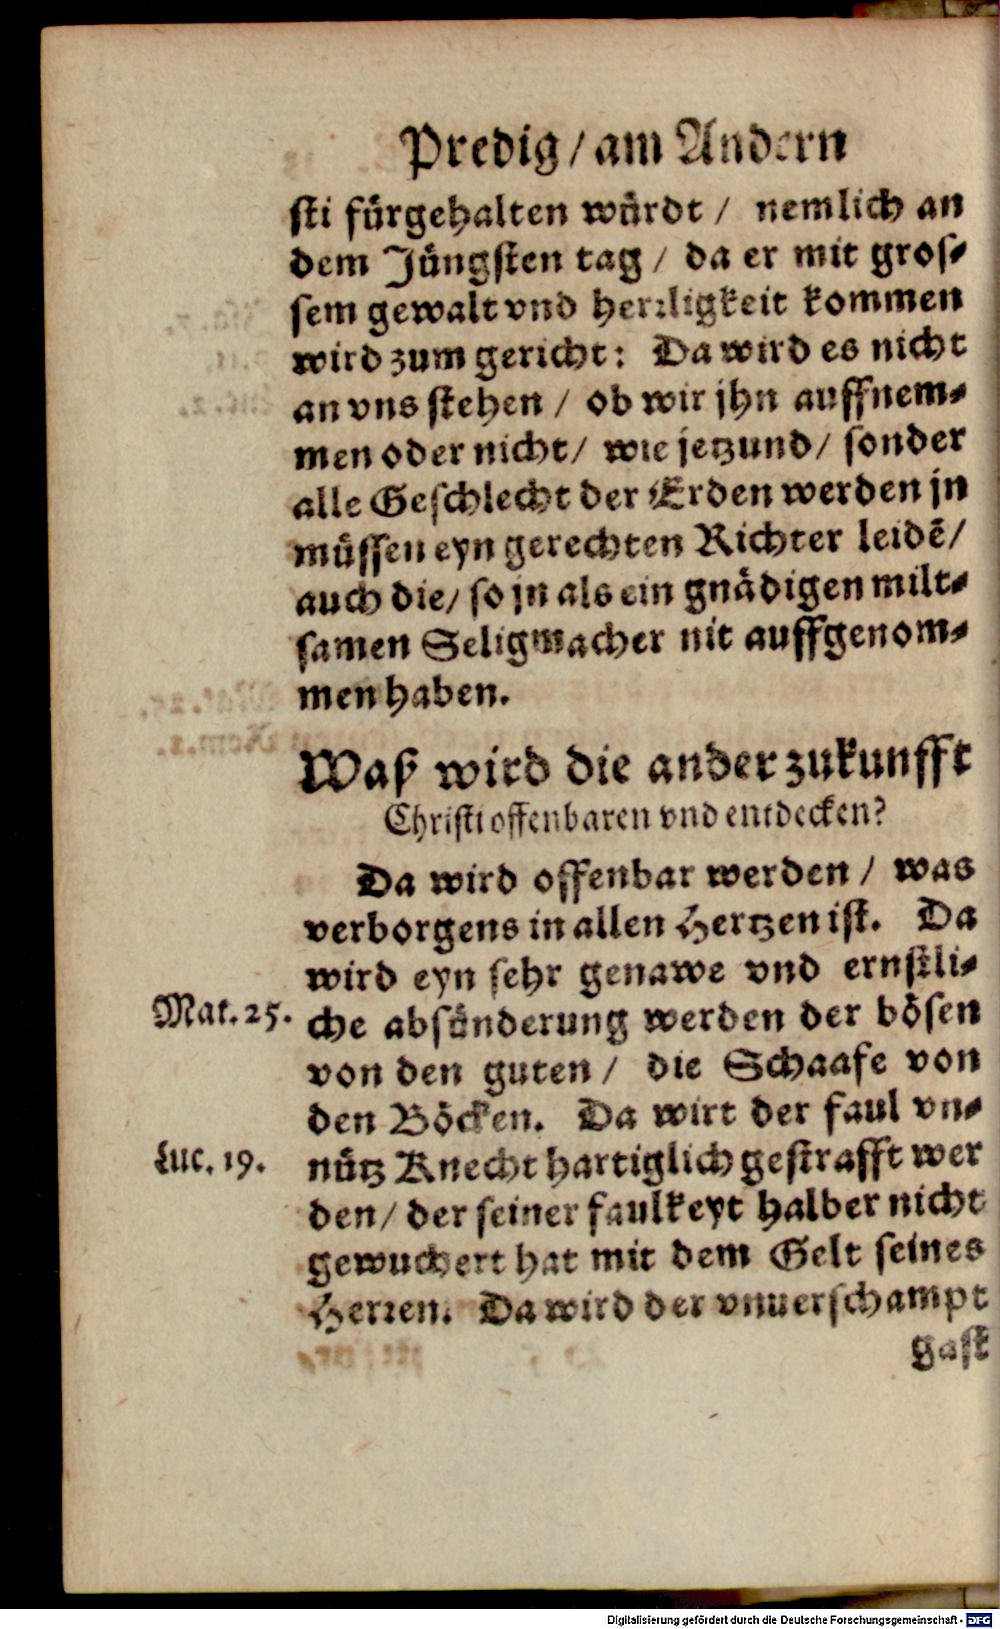 Predig / am Andern
sti fürgehalten würdt / nemlich an
dem Jüngsten tag / da er mit gros-
sem gewalt vnd herrligkeit kommen
wird zum gericht: Da wird es nicht
an vns stehen / ob wir jhn auffnem-
men oder nicht / wie jetzund / sonder
alle Geschlecht der Erden werden jn
müssen eyn gerechten Richter leidē /
auch die / so jn als ein gnädigen milt-
samen Seligmacher nit auffgenom-
men haben.
Waß wird die ander zukunfft
Christi offenbaren vnd entdecken?
Da wird offenbar werden / was
verborgens in allen Hertzen ist. Da
wird eyn sehr genawe vnd ernstli-
Mat. 25. che absünderung werden der bösen
von den guten / die Schaafe von
den Böcken. Da wirt der faul vn-
Luc. 19. nütz Knecht hartiglich gestrafft wer
den / der seiner faulkeyt halber nicht
gewuchert hat mit dem Gelt seines
Herren. Da wird der vnuerschampt
gast
Digitalisierung gefördert durch die Deutsche Forschungsgemeinschaft - DFG